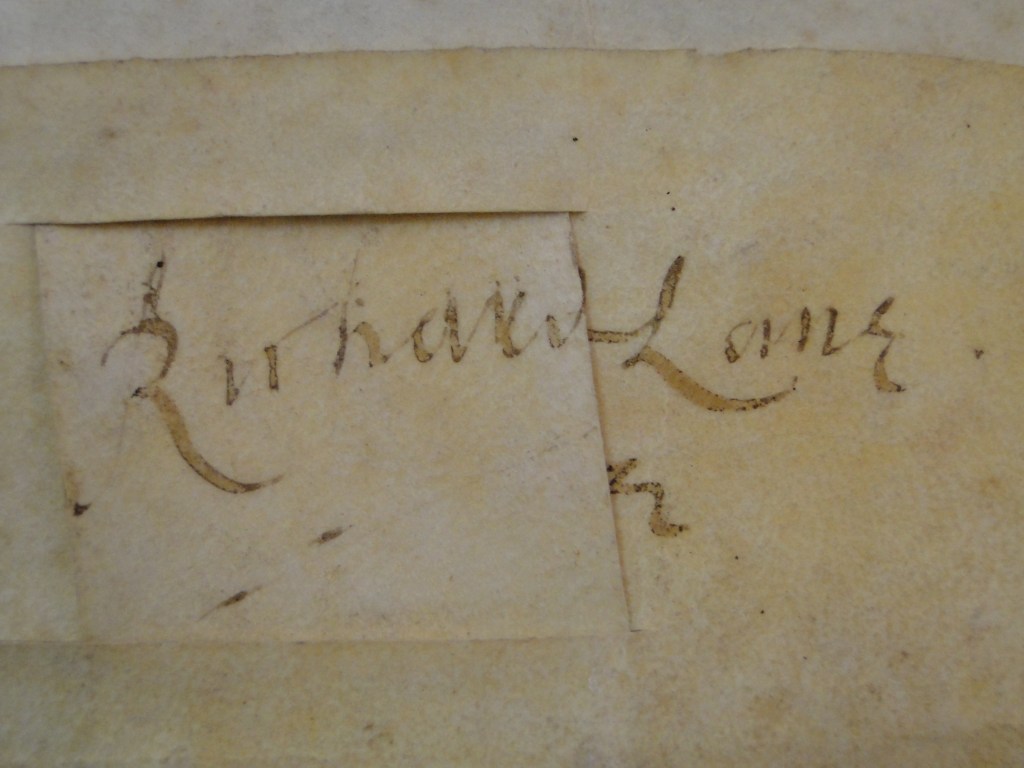 Richard Lane